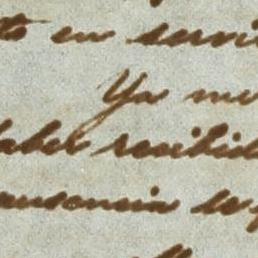 en servi
Ya me
haber recibido
ausencia de